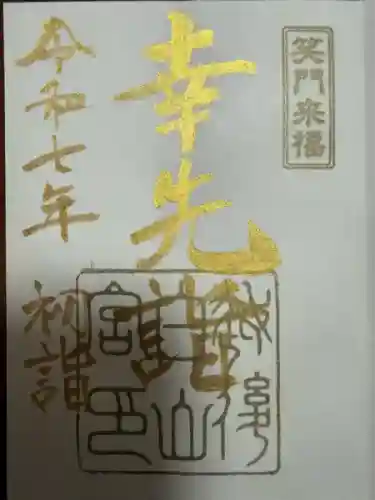 笑門来福
幸先詣
令和七年 初詣